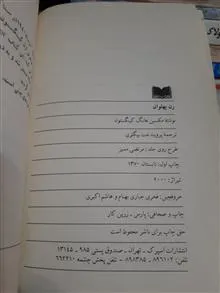 زن پهلوان
نوشتهٔ ماکسین هانگ کینگستون
ترجمهٔ پرویندخت بیگلری
طرح روی جلد: مرتضی ممیز
چاپ اول: تابستان ۱۳۷۰
تیراژ: ۲۰۰۰
حروفچین: فخری جباری بهنام و هاشم اکبری
چاپ و صحافی: پارس - زرین کار
حق چاپ برای ناشر محفوظ است
انتشارات اسپرک - تهران - صندوق پستی ۹۸۵ - ۱۳۱۴۵
تلفن: ۸۹۶۰۸۲ - ۸۹۸۳۸۵ - تلفن پخش چشمه ۶۶۲۲۱۰